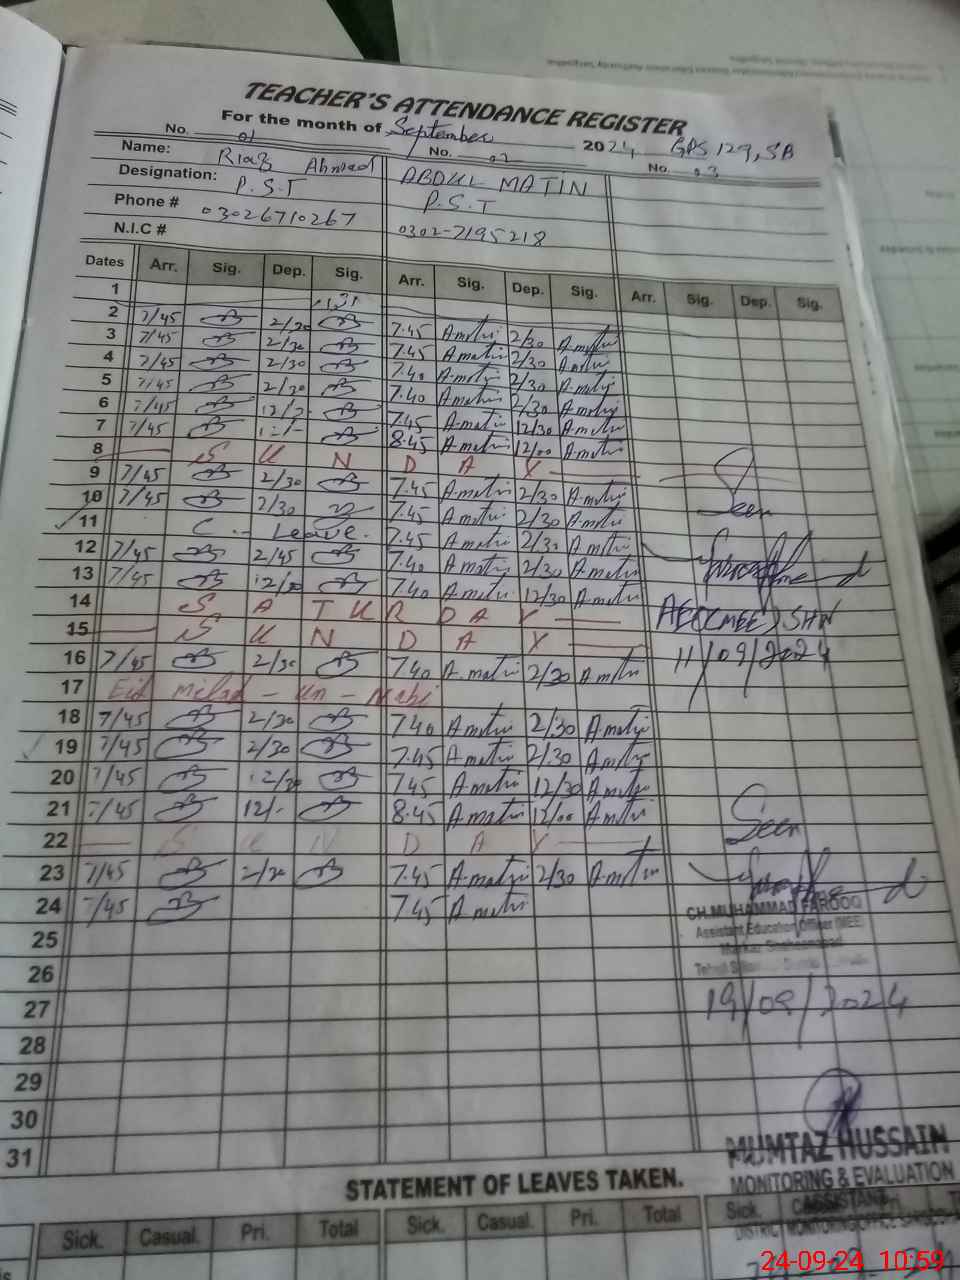 TEACHER'S ATTENDANCE REGISTER
For the month of September 2024 GPS 129, SB
No. 01 No. 02 No. 03
Name: Riaz Ahmad ABDUL MATIN
Designation: P.S.T P.S.T
Phone # 03026710267 0302-7195218
N.I.C #
Dates Arr. Sig. Dep. Sig. Arr. Sig. Dep. Sig. Arr. Sig. Dep. Sig.
1
2 7/45 2/30 7.45 A matin 2/30 A matin
3 7/45 2/30 7.45 A matin 2/30 A matin
4 7/45 2/30 7.40 A matin 2/30 A matin
5 7/45 2/30 7.40 A matin 2/30 A matin
6 7/45 7.45 A matin 12/30 A matin
7 7/45 8.45 A matin 12/00 A matin
8 S U N D A Y
9 7/45 2/30 7.45 A matin 2/30 A matin
10 7/45 2/30 7.45 A matin 2/30 A matin Seen
11 C - Leave. 7.45 A matin 2/30 A matin
12 7/45 2/45 7.40 A matin 2/30 A matin
13 7/45 7.40 A matin 12/30 A matin
14 S A T U R D A Y AEO(MEE) SHN
15 S U N D A Y
16 7/45 2/30 7.40 A matin 2/30 A matin 11/09/2024
17 Eid milad - un - Nabi
18 7/45 2/30 7.40 A matin 2/30 A matin
19 7/45 2/30 7.45 A matin 2/30 A matin
20 7/45 12/30 7.45 A matin 12/30 A matin
21 7/45 12/- 8.45 A matin 12/00 A matin Seen
22 S U N D A Y
23 7/45 2/30 7.45 A matin 2/30 A matin
24 7/45 7.45 A matin
CH.MUHAMMAD FAROOQ
Assistant Education Officer (MEE)
25
26
27 19/09/2024
28
29
30
31
MUMTAZ HUSSAIN
MONITORING & EVALUATION
ASSISTANT
STATEMENT OF LEAVES TAKEN.
Sick. Casual. Pri. Total Sick. Casual. Pri. Total Sick.
24-09-24 10:59